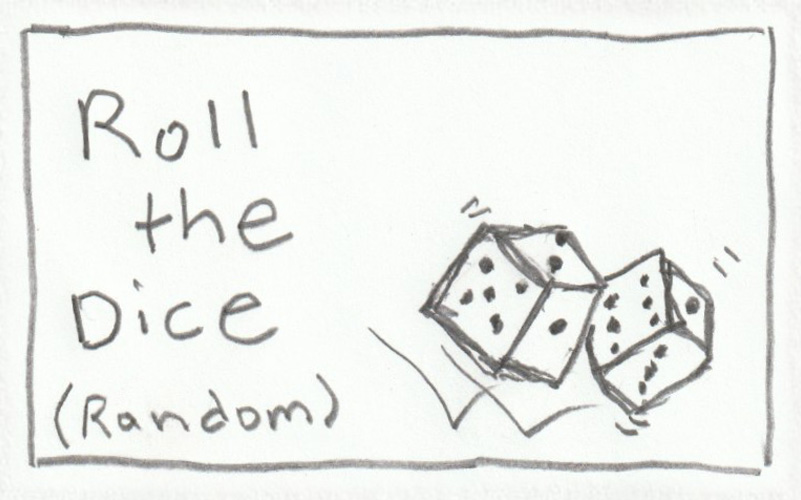 Roll
the
Dice
(Random)